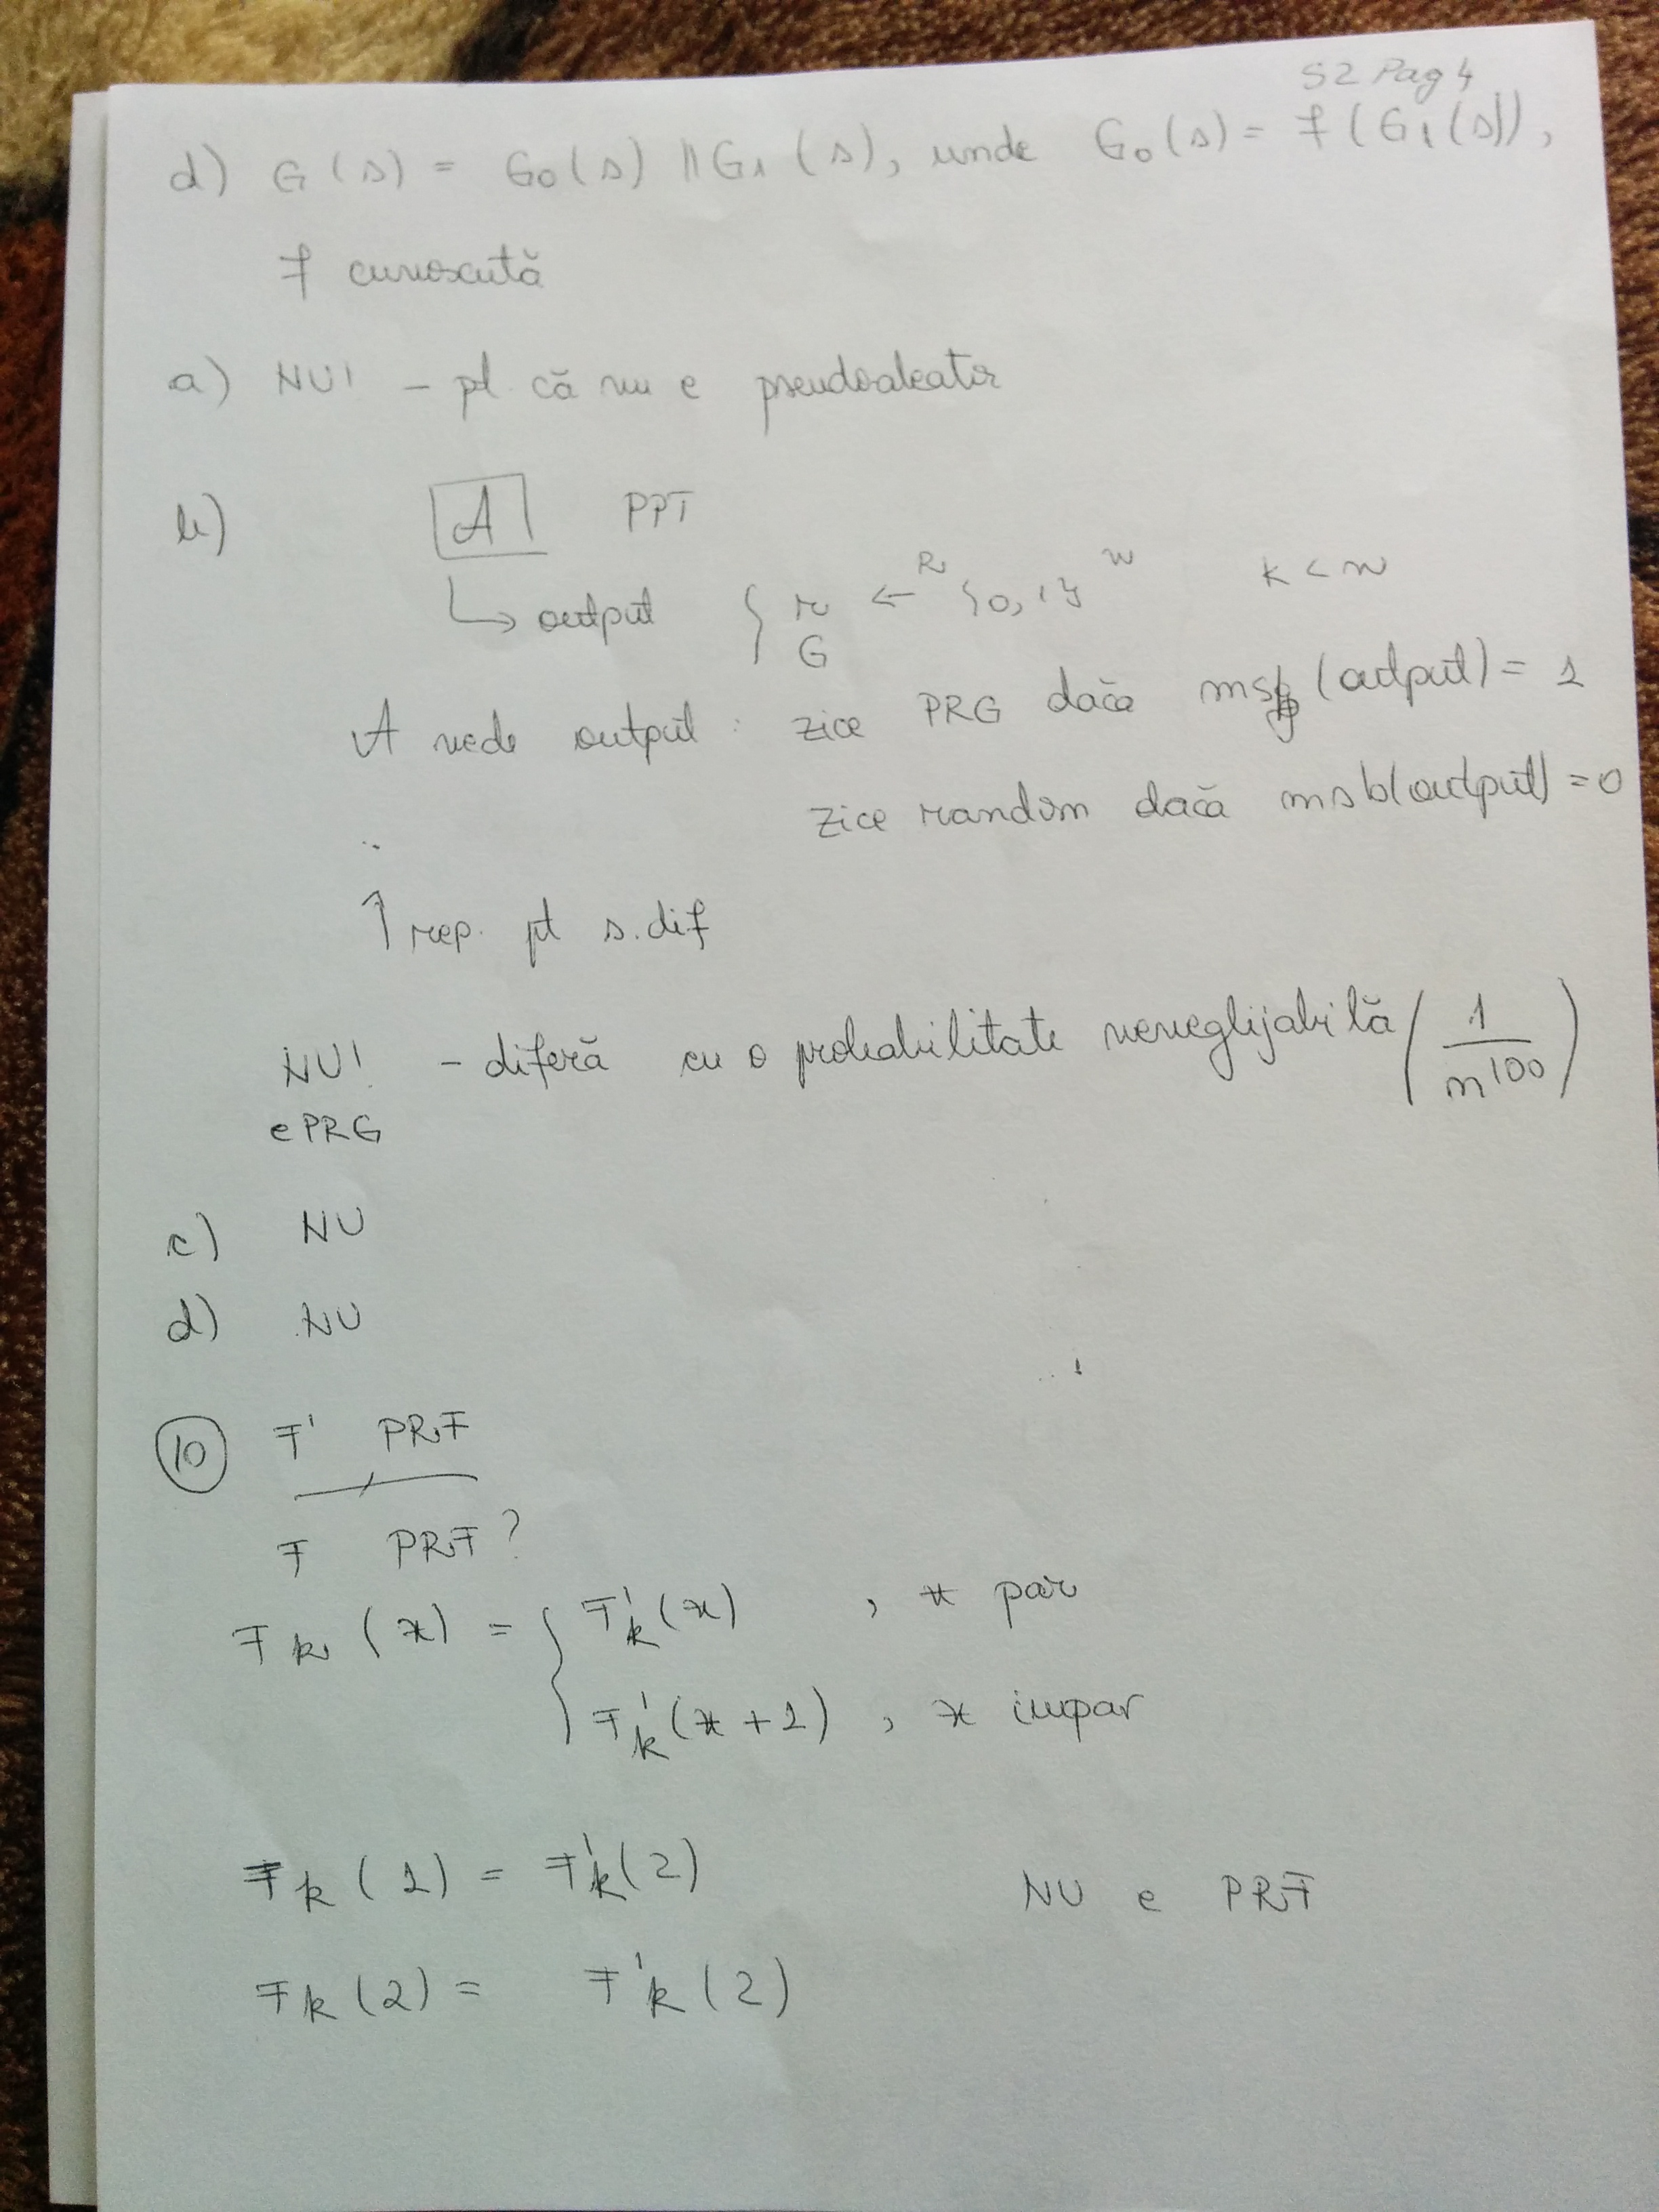 S2 Pag 4
d) G(s) = G0(s) || G1(s), unde G0(s) = f(G1(s)),
f cunoscută
a) NU! - pt. că nu e pseudoaleator
b) A PPT
↳ output { r ←R {0,1}^n k < n
G
A vede output : zice PRG dacă msb (output) = 1
zice random dacă msb(output) = 0
↑ rep. pt s. dif
NU! - diferă cu o probabilitate neneglijabilă (1/n^100)
e PRG
c) NU
d) NU
10 F' PRF
F PRF?
Fk(x) = { F'k(x) , x par
F'k(x+1) , x impar
Fk(1) = F'k(2) NU e PRF
Fk(2) = F'k(2)